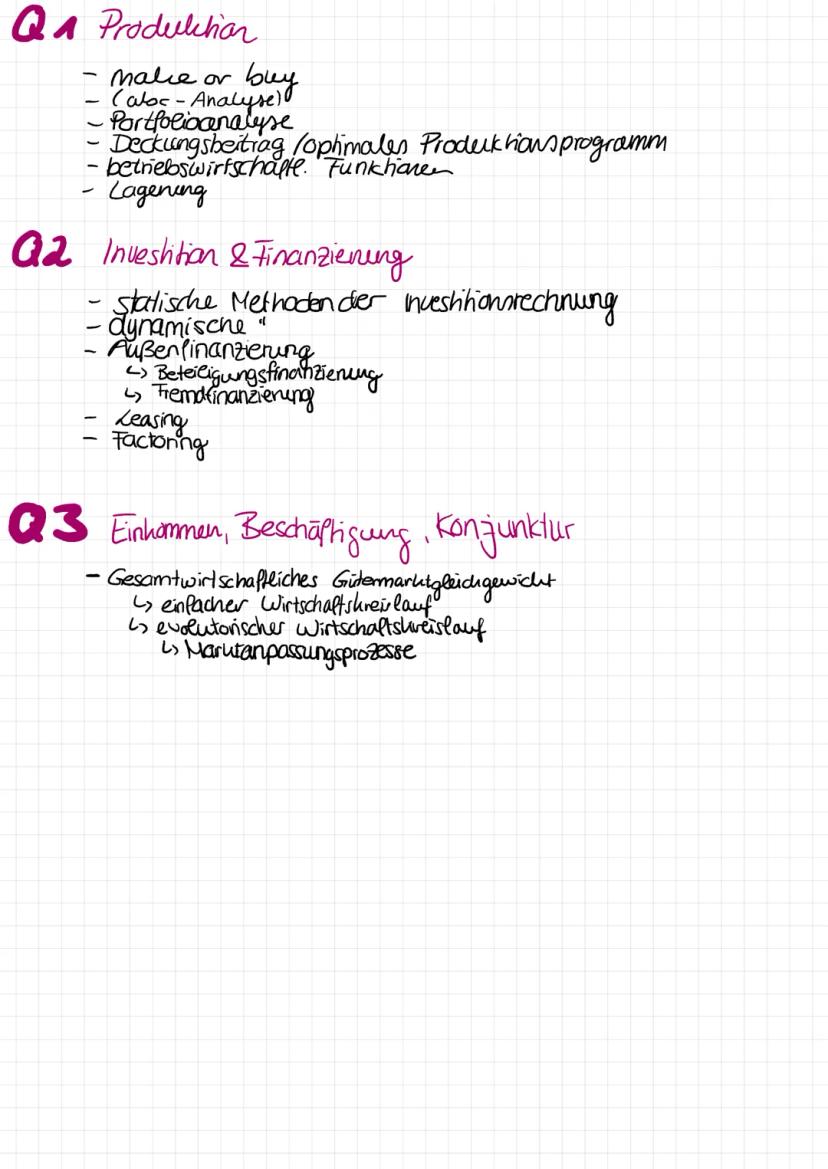 Q1 Produktion
- make or buy
- (abc-Analyse)
- Portfolioanalyse
- Deckungsbeitrag/optimales Produktionsprogramm
- betriebswirtschaftl. Funktionen
- Lagerung
Q2 Investition & Finanzierung
- statische Methoden der Investitionsrechnung
- dynamische "
- Außenfinanzierung
↳ Beteiligungsfinanzierung
↳ Fremdfinanzierung
- Leasing
- Factoring
Q3 Einkommen, Beschäftigung, Konjunktur
- Gesamtwirtschaftliches Gütermarktgleichgewicht
↳ einfacher Wirtschaftskreislauf
↳ evolutorischer Wirtschaftskreislauf
↳ Marktanpassungsprozesse